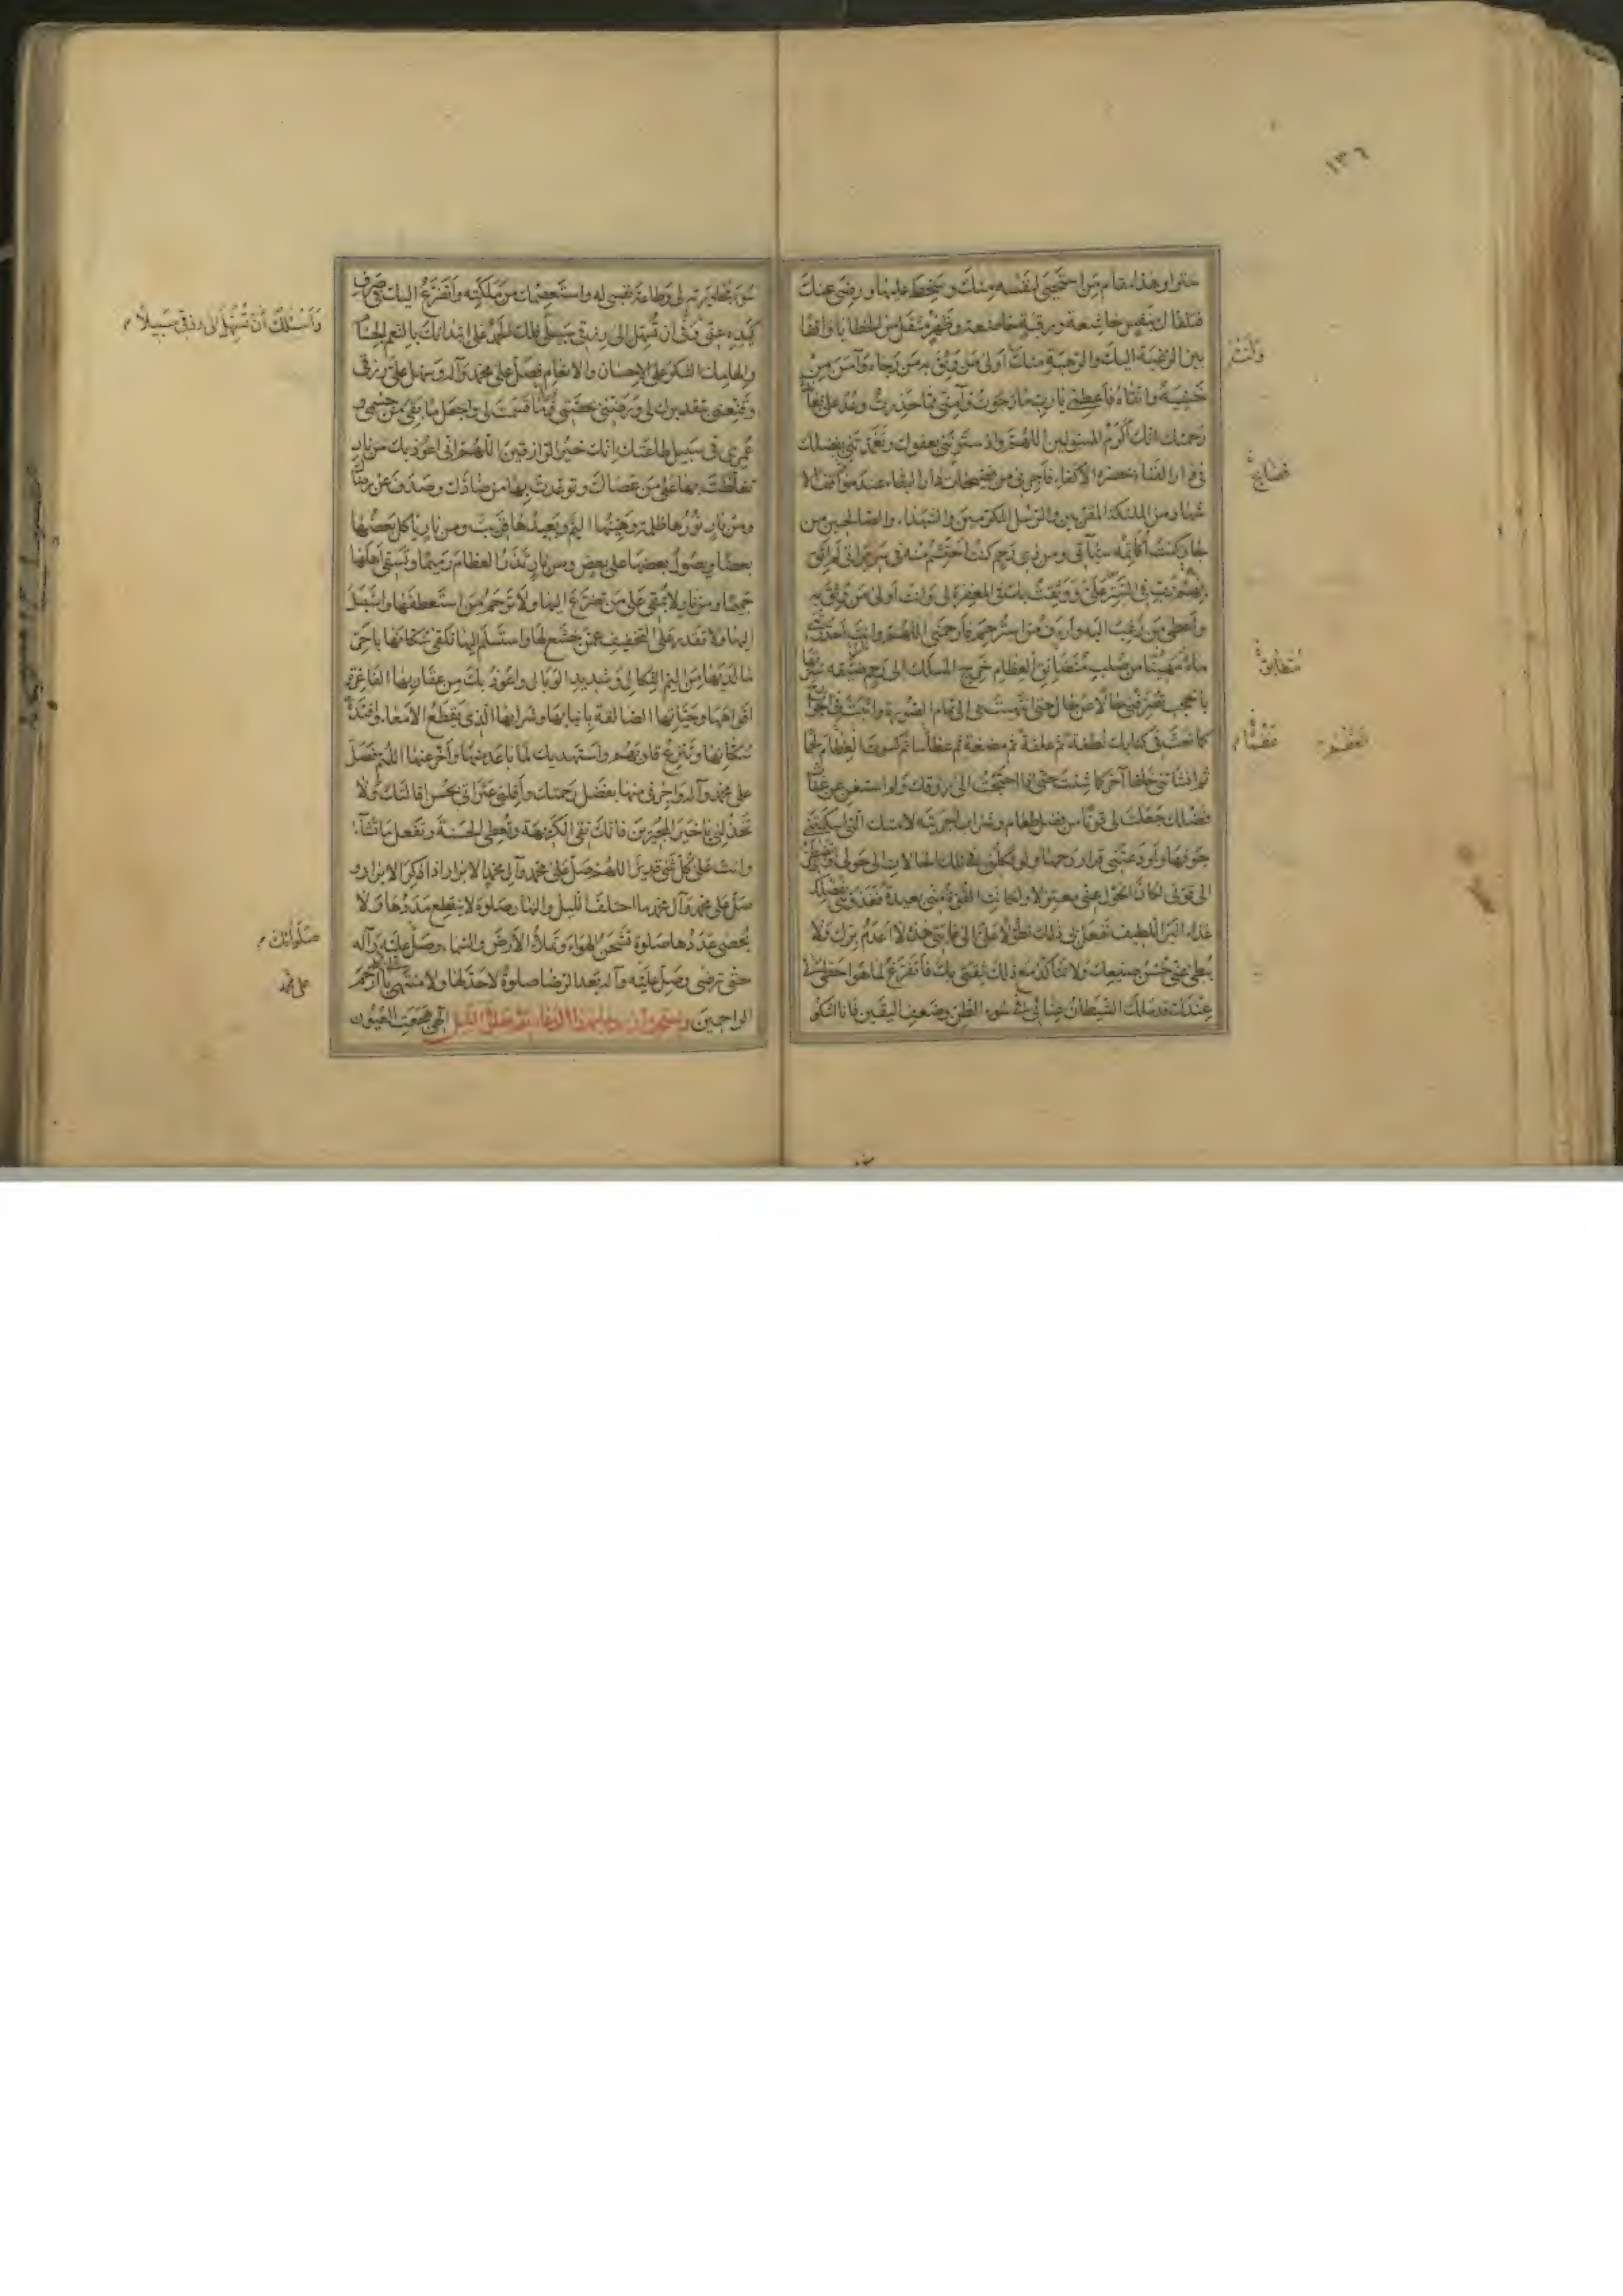 ١٣٦
علوا وهذا مقام من استحيى لنفسه منك وسخط عليها ورضى عنك
فتلقاك بنفس خاشعة ورقبة خاضعة وظهر مثقل من الخطايا واقفا
بين الرغبة اليك والرهبة منك اولى من وثق به من رجاه وآمن من
خشيه واتقاه فاعطنى يا رب ما رجوت وآمنى مما حذرت وعد على بعائدة
رحمتك انك اكرم المسئولين اللهم واذ سترتنى بعفوك وتغمدتنى بفضلك
فى دار الفناء بحضرة الاكفاء فاجرنى من فضيحات دار البقاء عند مواقف الا
شهاد من الملئكة المقربين والرسل المكرمين والشهداء والصالحين من
جار كنت اكاتمه سيآتى ومن ذى رحم كنت احتشم منه فى سريراتى لم اثق
بهم رب فى الستر على ووثقت بك فى المغفرة لى وانت اولى من وثق به
واعطى من رغب اليه وارأف من استرحم فارحمنى اللهم وانت احدرتنى
ماء مهينا من صلب متضائق العظام حرج المسالك الى رحم ضيقة سترتها
بالحجب تصرفنى حالا عن حال حتى انتهيت بى الى تمام الصورة واثبت فى الجوارح
كما نعت فى كتابك نطفة ثم علقة ثم مضغة ثم عظاما ثم كسوت العظام لحما
ثم انشاتنى خلقا آخر كما شئت حتى اذا احتجت الى رزقك ولم استغن عن غياث
فضلك جعلت لى قوتا من فضل طعام وشراب اجريته لامتك التى اسكنتنى
جوفها واودعتنى قرار رحمها ولو تكلنى فى تلك الحالات الى حولى او تضطرنى
الى قوتى لكان الحول عنى معتزلا ولكانت القوة منى بعيدة فغذوتنى بفضلك
غذاء البر اللطيف تفعل بى ذلك تطولا على الى غايتى هذه لا اعدم برك ولا
يبطئ بى حسن صنيعك ولا تتاكد مع ذلك ثقتى بك فاتفرغ لما هو احظى لى
عندك قد ملك الشيطان عنانى فى سوء الظن وضعف اليقين فانا اشكو
وانت
فضايح
متضايق
عظما م
سوء مجاورته لى وطاعة نفسى له واستعصمك من ملكته واتضرع اليك فى صرف
كيده عنى وفى ان تسهل الى رزقى سبيلا فلك الحمد على ابتدائك بالنعم الجسام
والهامك الشكر على الاحسان والانعام فصل على محمد وآله وسهل على رزقى
وقنعنى بتقديرك لى ورضنى بحصتى فيما قسمت لى واجعل ما ذهب من جسمى و
عمرى فى سبيل طاعتك انك خير الرازقين اللهم انى اعوذ بك من نار
تغلظت بها على من عصاك وتوعدت بها من ضادك وصدف عن رضاك
ومن نار نورها ظلمة وهينها اليم وبعيدها قريب ومن نار ياكل بعضها
بعضا ويصول بعضها على بعض ومن نار تذر العظام رميما وتسقى اهلها
حميما ومن نار لا تبقى على من تضرع اليها ولا ترحم من استعطفها واستبسل
اليها ولا تقدر على التخفيف عمن خشع لها واستسلم اليها تلقى سكانها باحر
ما لديها من اليم النكال وشديد الوبال واعوذ بك من عقاربها الفاغرة
افواهها وحياتها الصالقة بانيابها وشرابها الذى يقطع الامعاء وافئدة
سكانها وينزع قلوبهم واستهديك لما باعد منها واخر عنها اللهم فصل
على محمد وآله واجرنى منها بفضل رحمتك واقلنى عثراتى بحسن اقالتك ولا
تخذلنى يا خير المجيرين فانك تقى الكريهة وتعطى الحسنة وتفعل ما تشاء
وانت على كل شئ قدير اللهم صل على محمد وآل محمد اذا ذكر الابرار و
صل على محمد وآل محمد ما اختلف الليل والنهار صلوة لا ينقطع مددها ولا
يحصى عددها صلوة تشحن الهواء وتملأ الارض والسماء وصل عليه وآله
حتى ترضى وصل عليه وآله بعد الرضا صلوة لا حد لها ولا منتهى يا ارحم
الراحمين ويستحب ان يدعا بهذا الدعاء بعد صلوة الليل الهى هجعت العيون
واسئلك ان تسهل الى رزقى سبيلا م
صلواتك م
على محمد